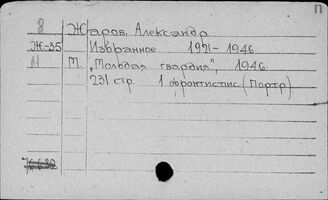 П
8 Жаров, Александр
Ж-35 Избранное 1921-1946
N М. „Молодая гвардия", 1946
231 стр. 1 фронтистис (Портр)